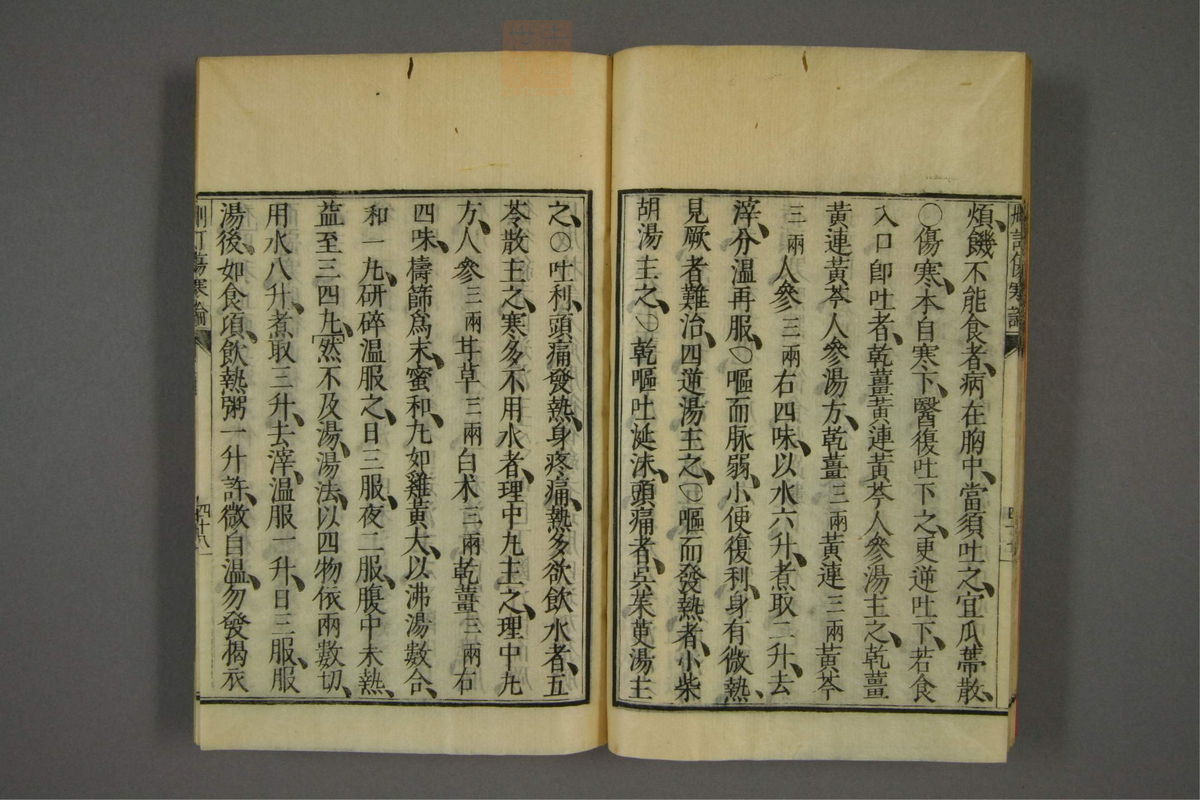 煩、饑不能食者、病在胸中、當須吐之、宜瓜蔕散、
○傷寒、本自寒下、醫復吐下之、更逆吐下、若食
入口卽吐者、乾薑黃連黃芩人參湯主之、乾薑
黃連黃芩人參湯方、乾薑三兩黃連三兩黃芩
三兩人參三兩右四味、以水六升、煮取二升、去
滓、分溫再服、○嘔而脉弱、小便復利、身有微熱、
見厥者難治、四逆湯主之、○嘔而發熱者、小柴
胡湯主之、○乾嘔吐涎沫、頭痛者、吳茱萸湯主
之、○吐利、頭痛發熱、身疼痛、熱多欲飲水者、五
苓散主之、寒多不用水者、理中丸主之、理中丸
方、人參三兩甘草三兩白术三兩乾薑三兩右
四味、檮篩爲末、蜜和丸、如雞黃大、以沸湯數合、
和一丸、研碎溫服之、日三服、夜二服、腹中未熱、
益至三四丸、然不及湯、湯法、以四物依兩數切、
用水八升、煮取三升、去滓、溫服一升、日三服、服
湯後、如食頃、飲熱粥一升許、微自溫、勿發揭衣
刪訂傷寒論
四十八